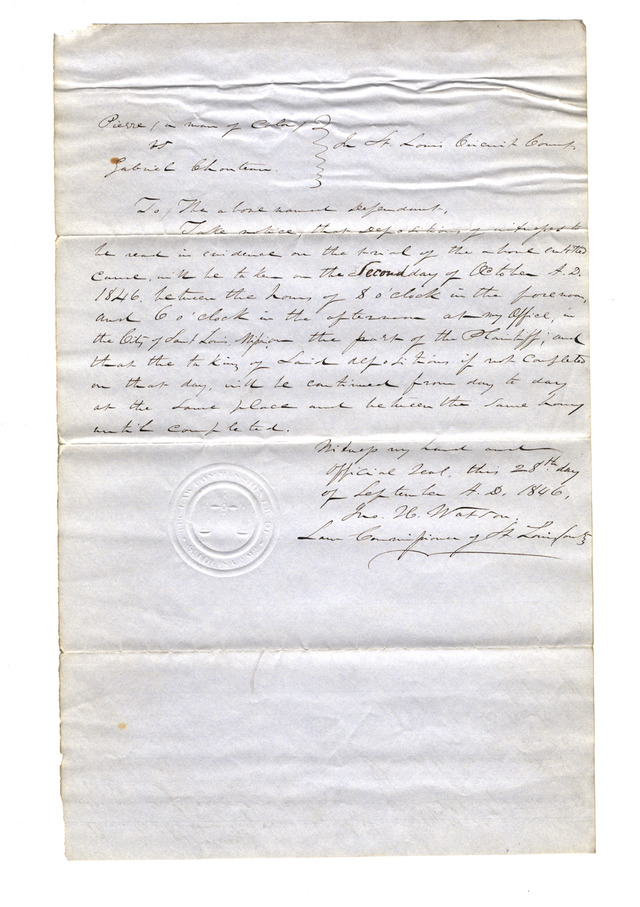 Pierre (a man of Color)
vs
Gabriel Chouteau.
In St Louis Circuit Court
To, The above named defendant,
Take notice, that depositions of witnesses to
be read in evidence on the trial of the above entitled
cause, will be taken on the Second day of October A.D.
1846. between the hours of 8 o'clock in the forenoon,
and 6 o'clock in the afternoon at my Office, in
the City of Saint Louis on the part of the Plaintiff; and
that the taking of Said depositions if not completed
on that day, will be continued from day to day
at the same place and between the same hours
until completed.
Witness my hand and
Official Seal, this 28th day
of September A.D. 1846,
Jno. H. Watson,
Law Commissioner of St Louis County